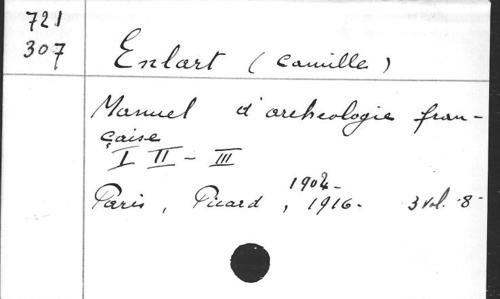 721
307
Enlart (Camille)
Manuel d'archeologie fran-
çaise
I II - III
1902-
Paris, Picard, 1916- 3 vol. 8-